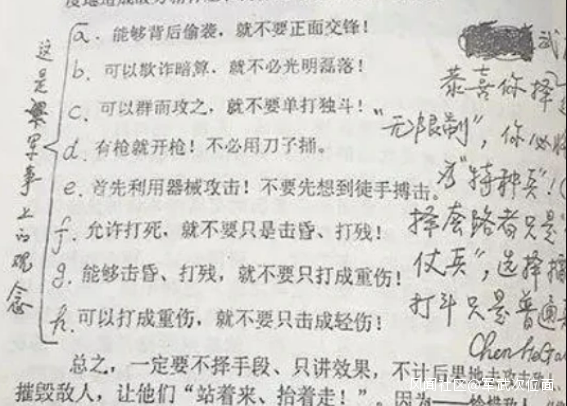 a. 能够背后偷袭，就不要正面交锋！
b. 可以欺诈暗算，就不必光明磊落！
c. 可以群而攻之，就不要单打独斗！
d. 有枪就开枪！不必用刀子捅。
e. 首先利用器械攻击！不要先想到徒手搏击。
f. 允许打死，就不要只是击昏、打残！
g. 能够击昏、打残，就不要只打成重伤！
h. 可以打成重伤，就不要只击成轻伤！
总之，一定要不择手段、只讲效果，不计后果地去攻击敌人！
摧毁敌人，让他们“站着来、抬着走！”。因为
这是军事上的观念
恭喜你择
“无限制”，你必将
为“特种兵”！
择套路者只是
仗兵”，选择擂
打斗只是普通
风闻社区@军武次位面